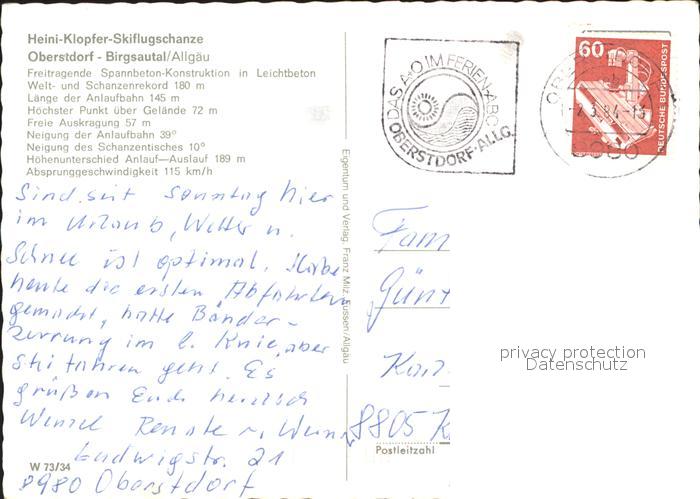 Heini-Klopfer-Skiflugschanze
Oberstdorf - Birgsautal/Allgäu
Freitragende Spannbeton-Konstruktion in Leichtbeton
Welt- und Schanzenrekord 180 m
Länge der Anlaufbahn 145 m
Höchster Punkt über Gelände 72 m
Freie Auskragung 57 m
Neigung der Anlaufbahn 39°
Neigung des Schanzentisches 10°
Höhenunterschied Anlauf—Auslauf 189 m
Absprunggeschwindigkeit 115 km/h
Sind seit Sonntag hier
im Urlaub, Wetter u.
Schnee ist optimal. Habe
heute die ersten Abfahrten
gemacht, hatte Bänder-
zerrung im l. Knie, aber
Ski fahren geht. Es
grüßen Euch herzlich
Renate u.
Ludwigstr. 21
8980 Oberstdorf
W 73/34
Eigentum und Verlag, Franz Milz, Füssen/Allgäu
DAS A+O IM FERIEN-ABC
OBERSTDORF-ALLG.
60
DEUTSCHE BUNDESPOST
Fam
Günt
8805 K
Postleitzahl
privacy protection
Datenschutz